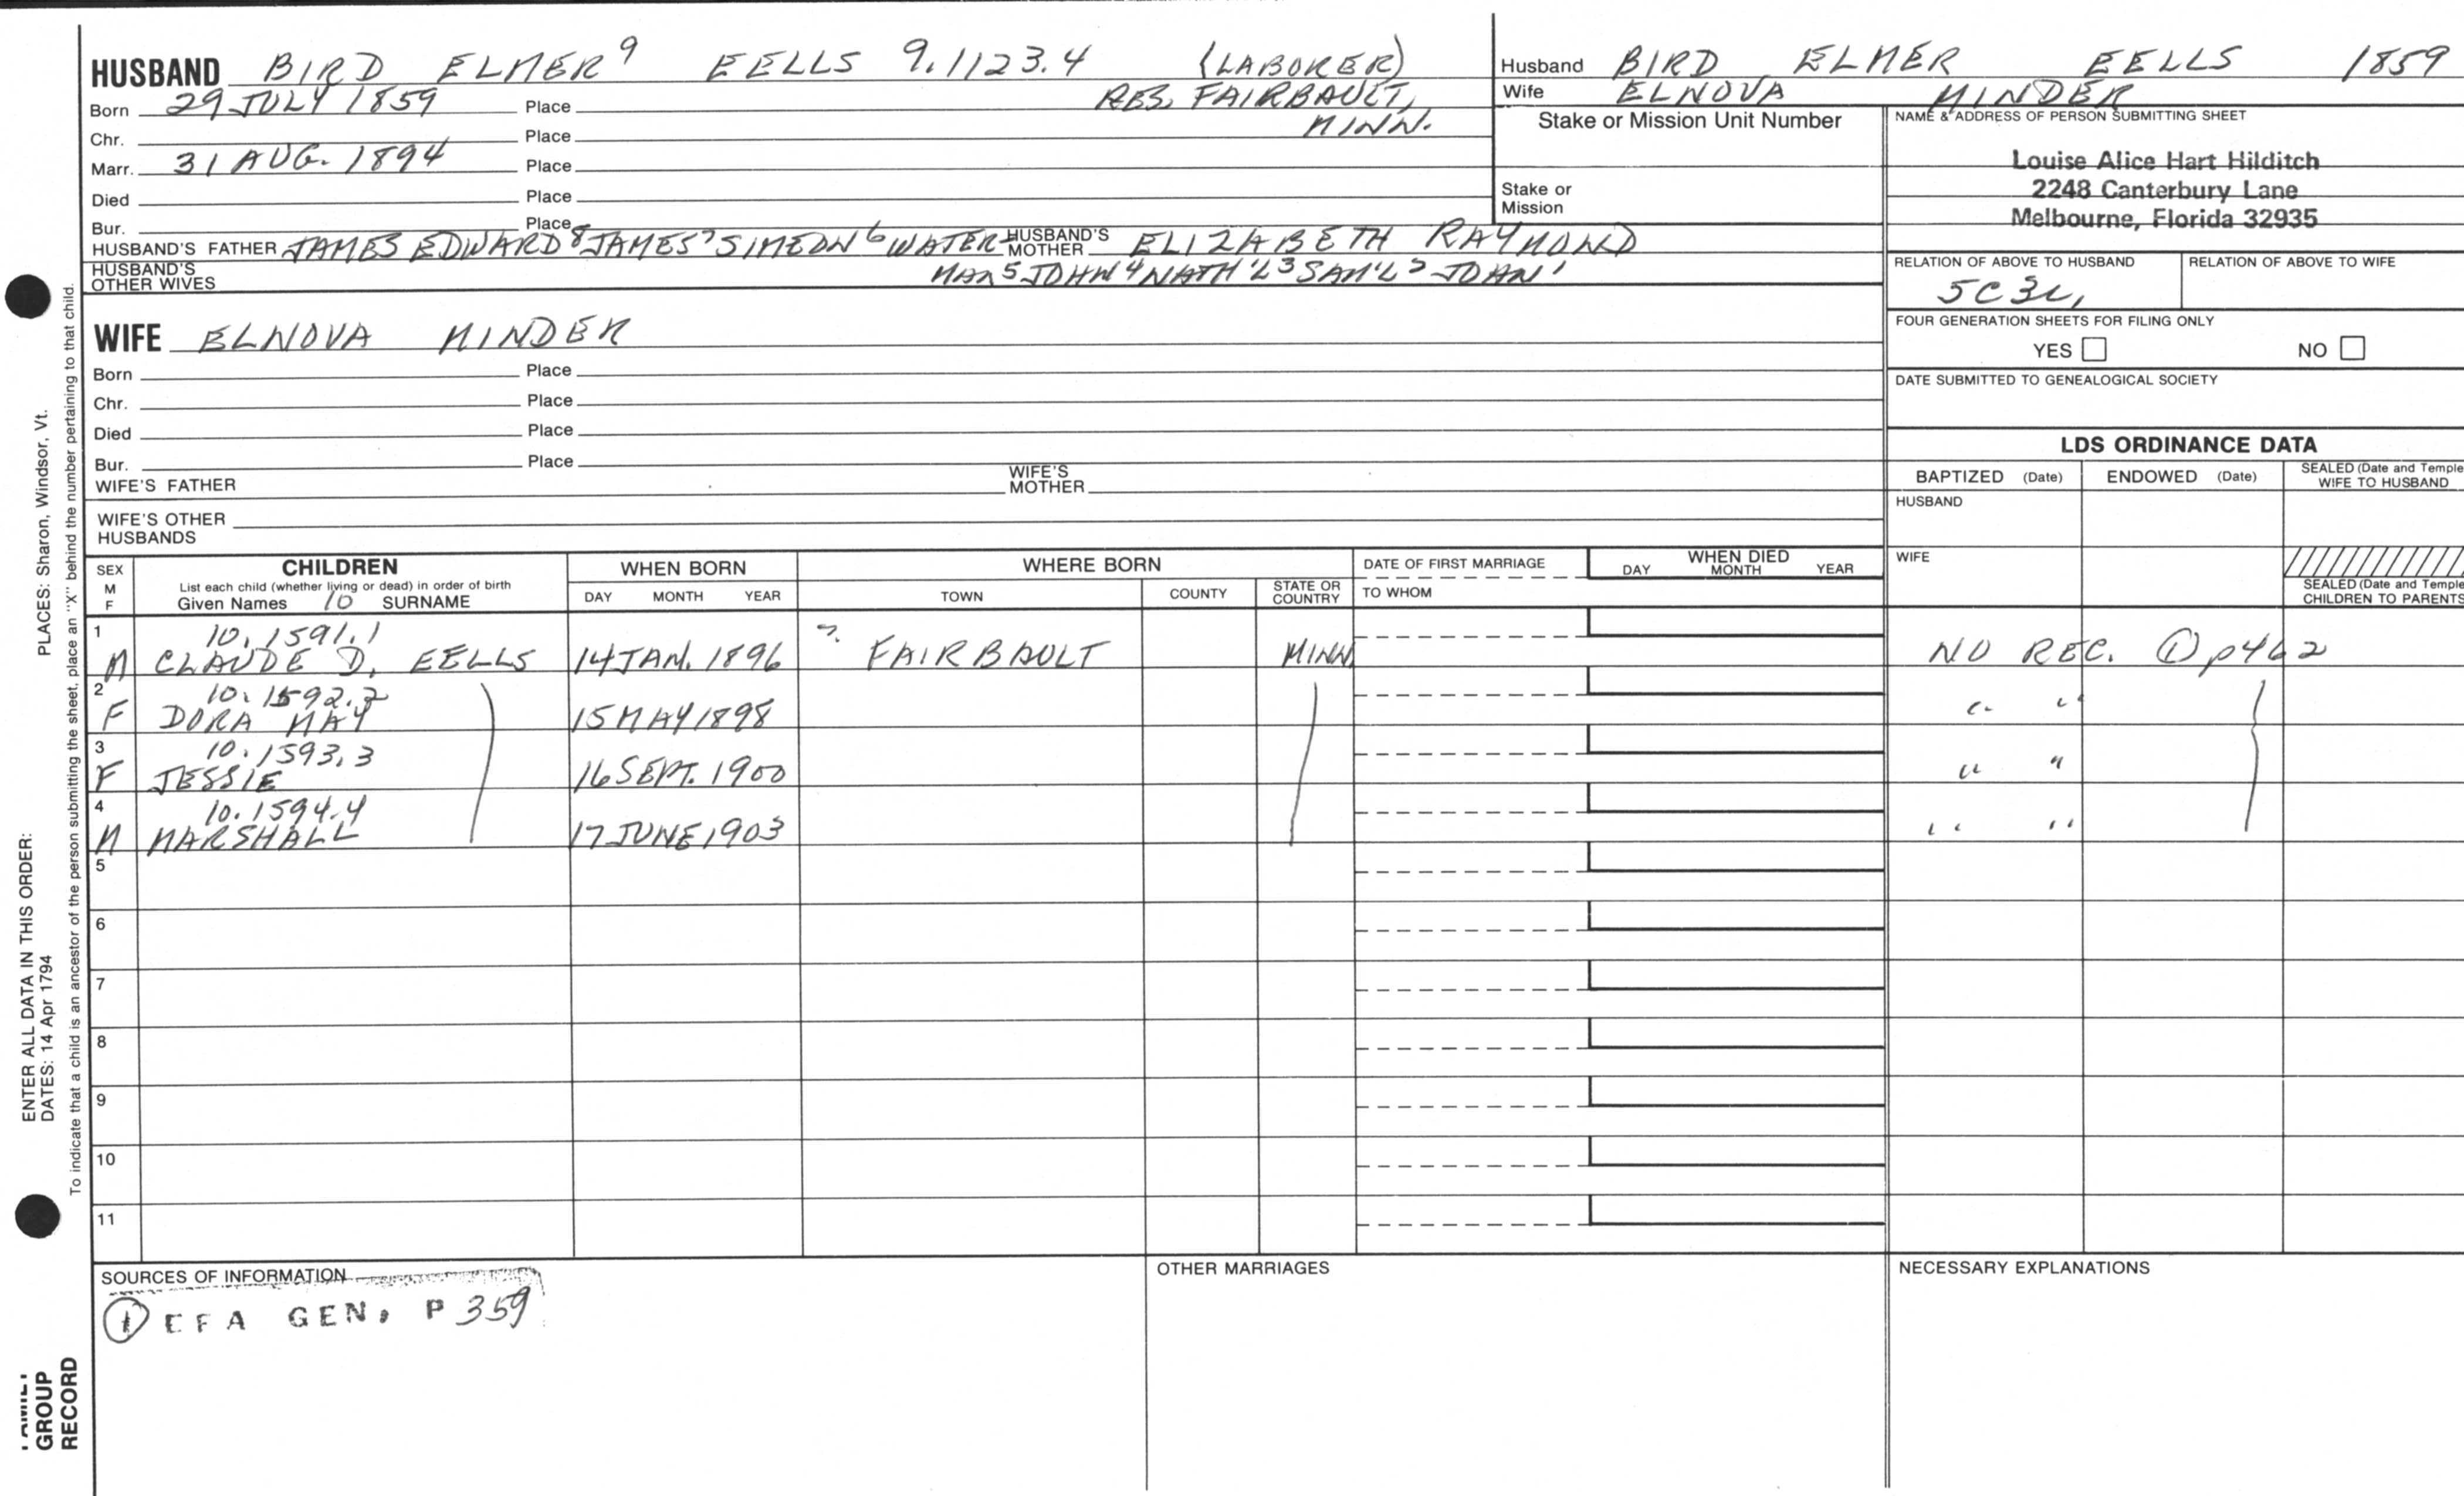 HUSBAND BIRD ELMER⁹ EELLS 9.1123.4 (LABORER)
Born 29 JULY 1859 Place RES. FAIRBAULT,
MINN.
Chr. Place
Marr. 31 AUG. 1894 Place
Died Place
Bur. Place
HUSBAND'S FATHER JAMES EDWARD⁸ JAMES⁷ SIMEON⁶ WATER- HUSBAND'S MOTHER ELIZABETH RAYMOND
MAN⁵ JOHN⁴ NATH'L³ SAM'L² JOHN¹
HUSBAND'S OTHER WIVES
Husband BIRD ELMER EELLS 1859
Wife ELNOVA MINDER
Stake or Mission Unit Number
Stake or
Mission
NAME & ADDRESS OF PERSON SUBMITTING SHEET
Louise Alice Hart Hilditch
2248 Canterbury Lane
Melbourne, Florida 32935
RELATION OF ABOVE TO HUSBAND RELATION OF ABOVE TO WIFE
5C3r,
FOUR GENERATION SHEETS FOR FILING ONLY
YES NO
DATE SUBMITTED TO GENEALOGICAL SOCIETY
WIFE ELNOVA MINDER
Born Place
Chr. Place
Died Place
Bur. Place
WIFE'S FATHER WIFE'S MOTHER
WIFE'S OTHER
HUSBANDS
LDS ORDINANCE DATA
BAPTIZED (Date) ENDOWED (Date) SEALED (Date and Temple
WIFE TO HUSBAND
HUSBAND
WIFE
SEALED (Date and Temple
CHILDREN TO PARENTS
SEX
M
F
CHILDREN
List each child (whether living or dead) in order of birth
Given Names 10 SURNAME
WHEN BORN
DAY MONTH YEAR
WHERE BORN
TOWN COUNTY STATE OR COUNTRY
DATE OF FIRST MARRIAGE
TO WHOM
WHEN DIED
DAY MONTH YEAR
1 10.1591.1
M CLAUDE D. EELLS 14 JAN. 1896 ? FAIRBAULT MINN NO REC. ① p462
2 10.1592.2
F DORA MAY 15 MAY 1898 " "
3 10.1593.3
F JESSIE 16 SEPT. 1900 " "
4 10.1594.4
M MARSHALL 17 JUNE 1903 " "
5
6
7
8
9
10
11
SOURCES OF INFORMATION
① EFA GEN, P 359
OTHER MARRIAGES
NECESSARY EXPLANATIONS
PLACES: Sharon, Windsor, Vt.
ENTER ALL DATA IN THIS ORDER:
DATES: 14 Apr 1794
To indicate that a child is an ancestor of the person submitting the sheet, place an "X" behind the number pertaining to that child.
FAMILY
GROUP
RECORD